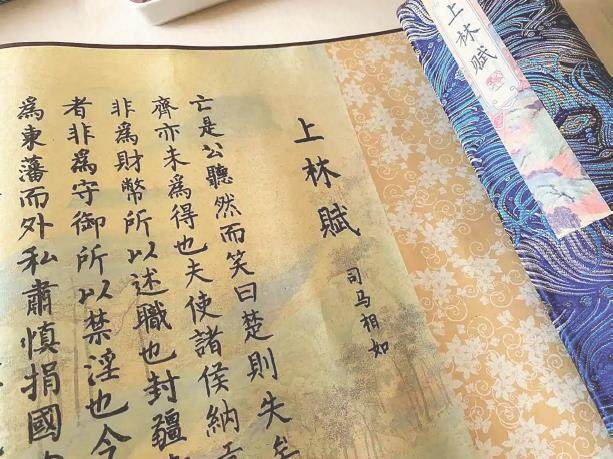 上林賦
上林賦
司马相如
亡是公聽然而笑曰楚則失矣
齊亦未爲得也夫使諸侯納
非爲財幣所以述職也封疆
者非爲守御所以禁淫也今
爲東藩而外私肅慎捐國